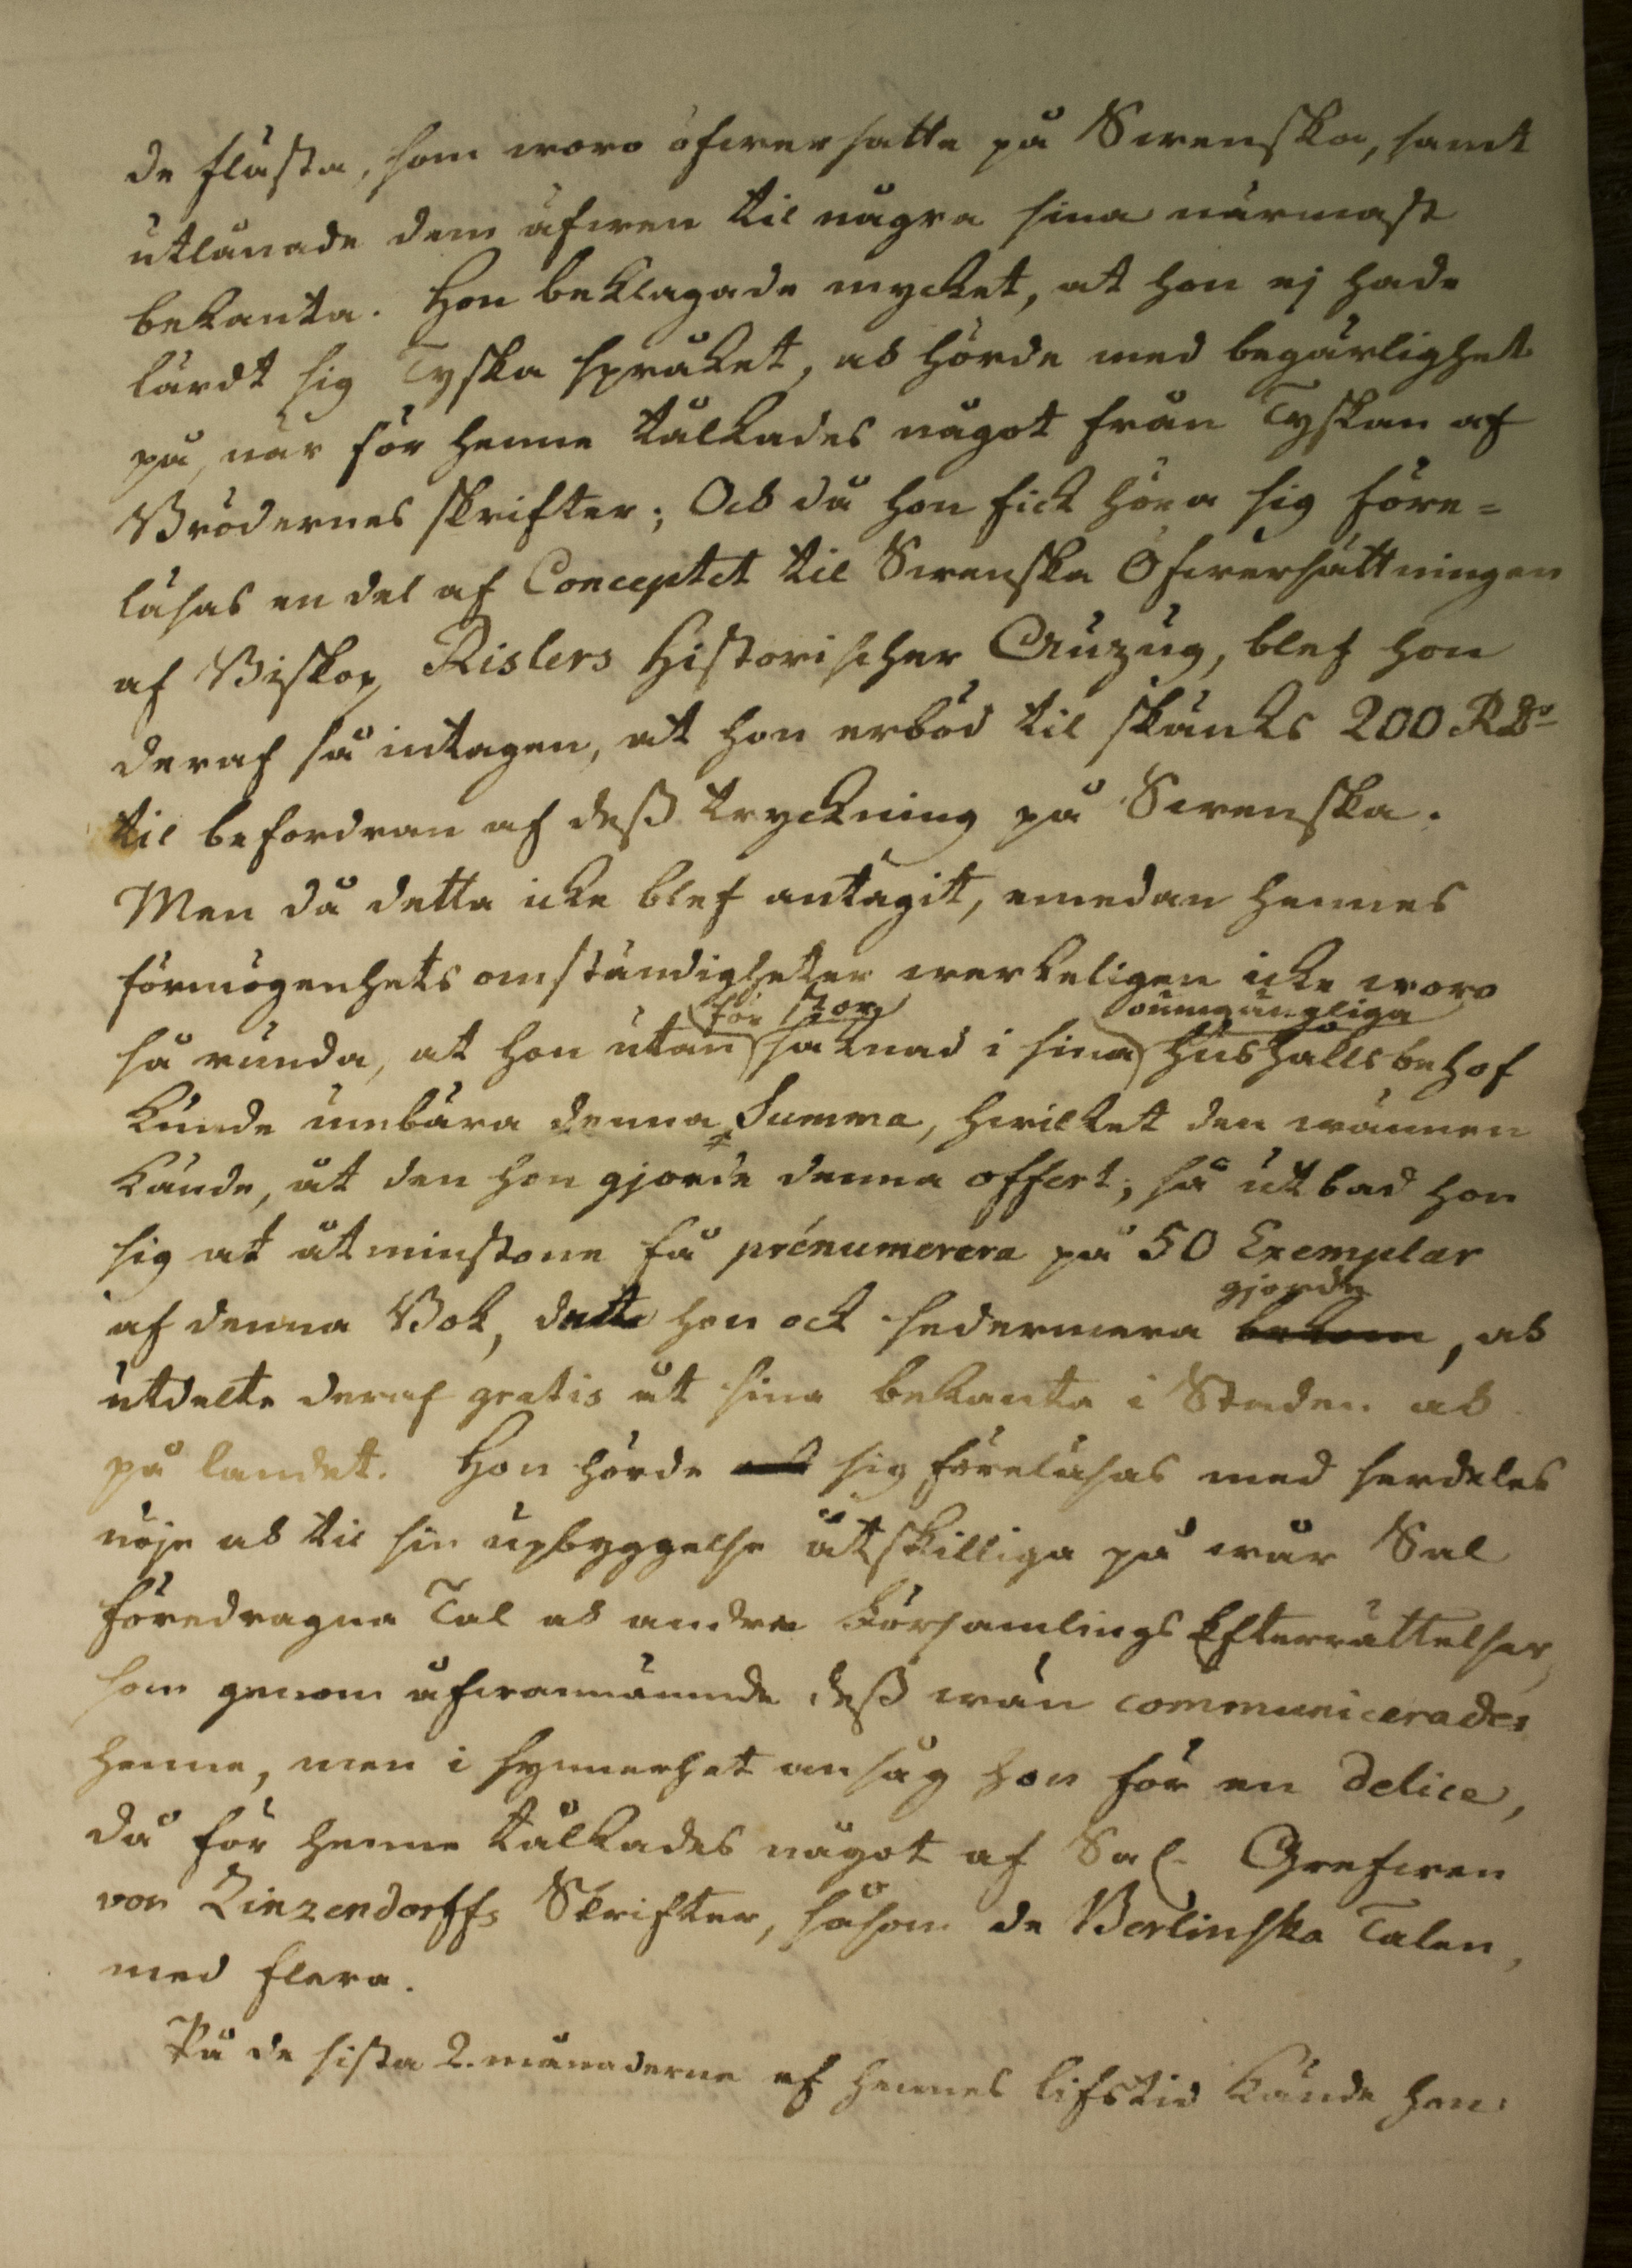 de flästa, som woro öfwersatte på Swenska, samt
utlånade dem äfwen til några sina närmast
bekanta. Hon beklagade mycket, at hon ej hade
lärdt sig Tyska språket, och hörde med begärlighet
på, när för henne tålkades något från Tyskan af
Brödernes skrifter; Och då hon fick höra sig före=
läsas en del af Conceptet til Swenska Öfwersättningen
af Biskop Rislers Historischer Auzug, blef hon
deraf så intagen, at hon erbød til skänks 200 RDr
til befordran af deß tryckning på Swenska.
Men då detta icke blef antagit, emedan hennes
förmögenhets omständigheter werkeligen icke woro
för stor oumgängliga
så runda, at hon utan saknad i sina hushålls behof
kunde umbära denna Summa, hwilket den wännen
kände, åt den hon gjorde denna offert; så utbad hon
sig at åtminstone få prénumerera på 50 Exemplar
gjorde
af denna Bok, dette hon ock sedermera bekom, och
utdelte deraf gratis åt sina bekanta i Staden och
på landet. Hon hörde och sig föreläsas med serdeles
nöje och til sin upbyggelse åtskilliga på wår Sal
föredragna Tal och andra Församlings Efterrättelser,
som genom ofwannämnde deß wän communicerades
henne, men i synnerhet ansåg hon för en delice,
då för henne tålkades något af Sal. Grefwen
von Zinzendorffs Skrifter, såsom de Berlinska Talen,
med flera.
På de sista 2. månaderne af hennes lifstid kände hon